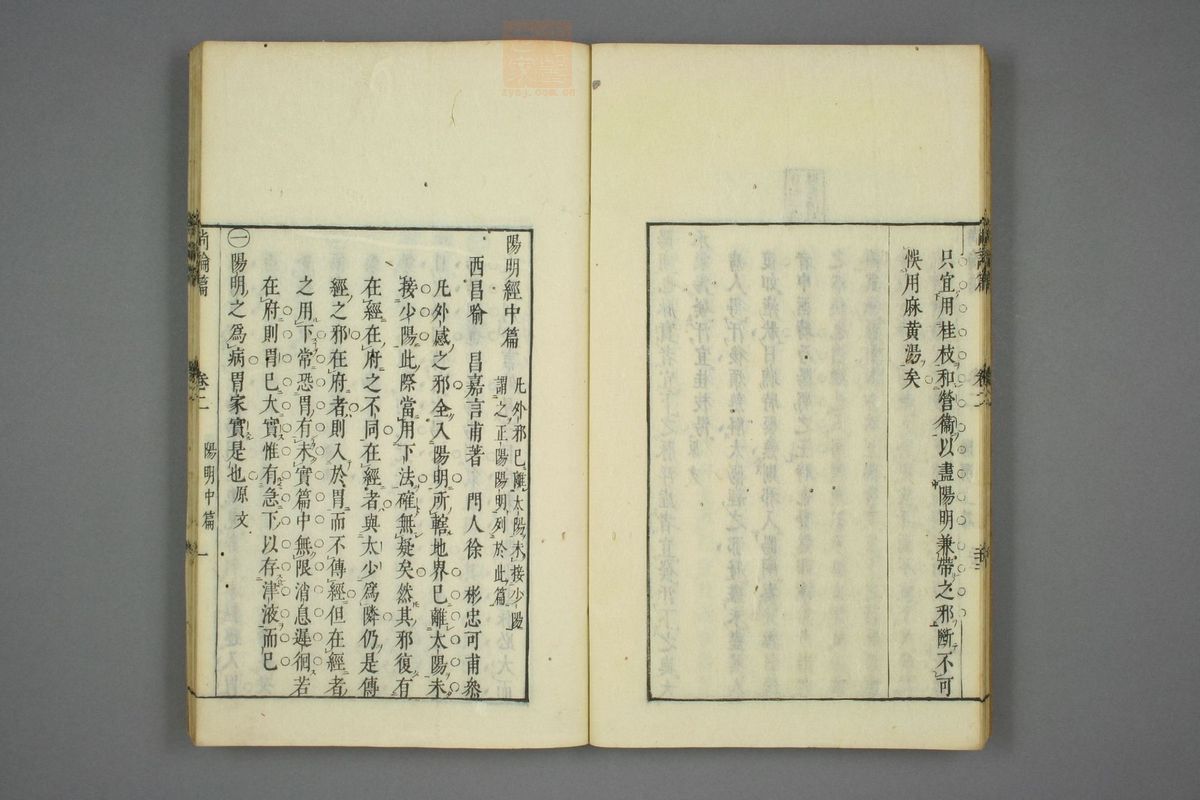 只宜用桂枝和營衞以盡陽明兼帶之邪斷不可
悞用麻黄湯矣
陽明經中篇
凢外邪已離太陽未接少陽
謂之正陽陽明列於此篇
西昌喻 昌嘉言甫著 門人徐 彬忠可甫叅
凢外感之邪全入陽明所轄地界已離太陽未
接少陽此際當用下法確無疑矣然其邪復有
在經在府之不同在經者與太少爲隣仍是傳
經之邪在府者則入於胃而不傳經但在經者
之用下常恐胃有未實篇中無限消息遲徊若
在府則胃已大實惟有急下以存津液而已
㊀陽明之爲病胃家實是也原文
尚論篇 卷二 陽明中篇 一